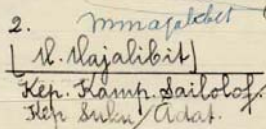 2. mmajalibit
[ M. Majalibit ]
Kep. Kamp. Sailolof/
Kep Suku/Adat.